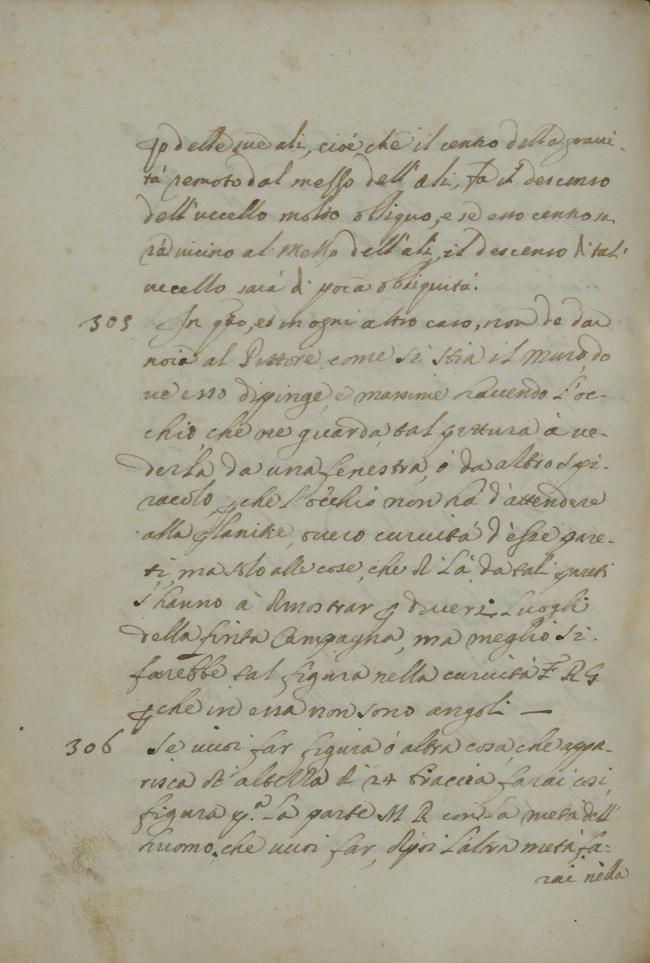 p delle sue ali, cioè che il centro della gravi-
tà remoto dal messo dell'ali, fà il descenso
dell'uccello molto obliquo, e se esso centro sa-
rà vicino al Messo dell'ali, il descenso di tal'
uccello sarà di poca obliquità.
305 In qto, et in ogni altro caso, non de dar
noia al Pittore come si stia il muro, do
ue esso dipinge, e massime hauendo l'oc-
chio, che ne guarda tal pittura à ue-
derla da una fenestra, ò da altro spi-
racolo, p che l'occhio non hà d'attendere
alla planitie, ouero curuità d'esse pare-
ti, ma solo alle cose, che di là da tali pareti
s'hanno à dimostrar p diuersi luoghi
della finta Campagna, ma meglio si
farebbe tal figura nella curuità F R G
p che in essa non sono angoli —
306 Se uuoi far figura ò altra cosa, che appa-
risca di altezza di 24 braccia farai così,
figura p.a la parte M R con la metà dell'
huomo, che uuoi far, dipoi l'altra metà fa-
rai nella